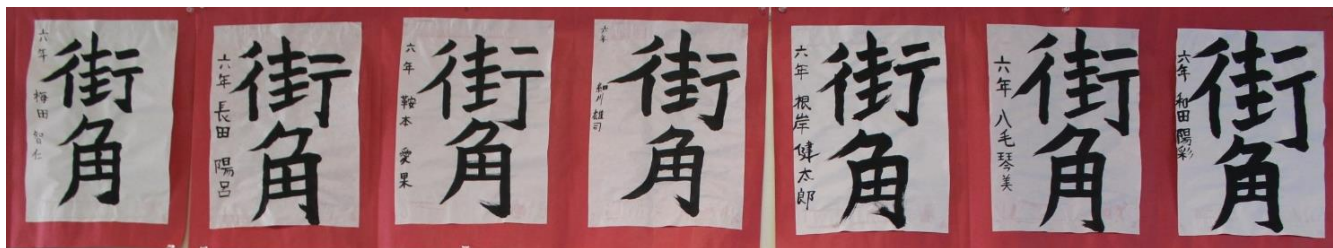 街角
六年 梅田 智仁
街角
六年 長田 陽呂
街角
六年 鞍本 愛果
街角
六年 細川 雄司
街角
六年 根岸 健太郎
街角
六年 八毛琴美
街角
六年 和田 陽彩